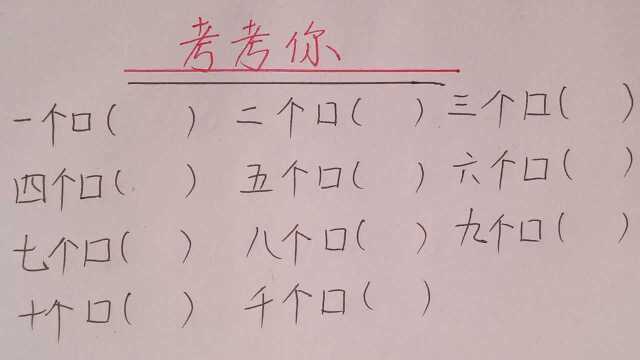 考考你
一个口( ) 二个口( ) 三个口( )
四个口( ) 五个口( ) 六个口( )
七个口( ) 八个口( ) 九个口( )
十个口( ) 千个口( )